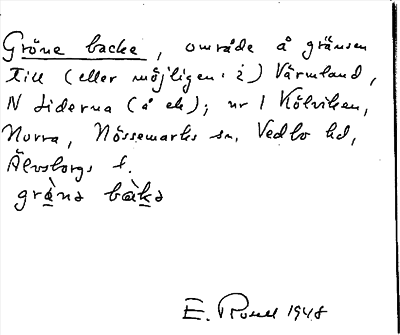 Gröne backe, område å gränsen
till (eller möjligen i) Värmland,
N siderna (å ek); nr 1 Kölviken,
Norra, Nössemarks sn, Vedbo hd,
Älvsborgs l.
grǜna bàka
E. 1948